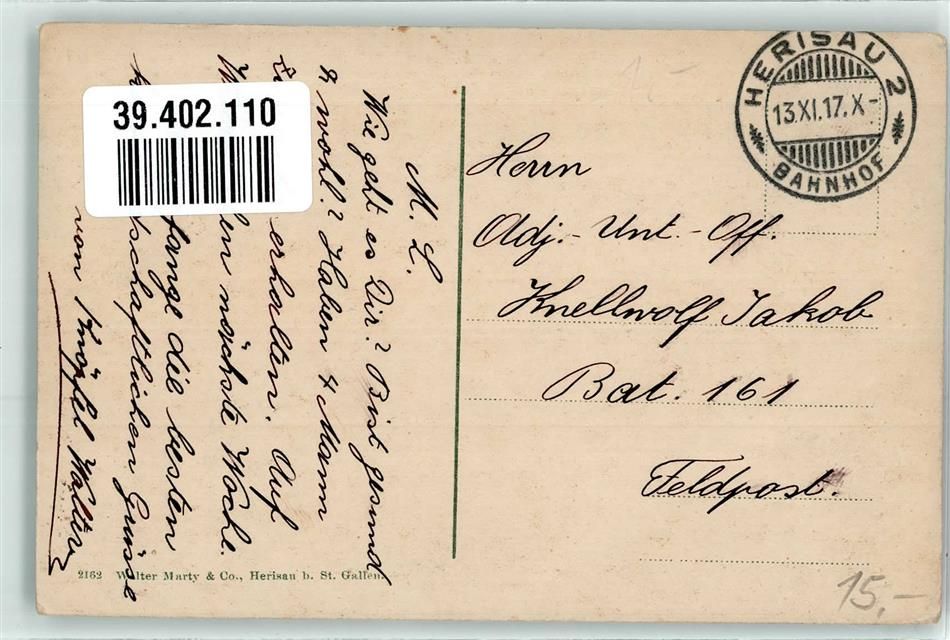 39.402.110
HERISAU 2
13.XI.17.X-
BAHNHOF
M. L.
Wie geht es Dir? Bist gesund
& wohl? Haben 4 Mann
erhalten. Auf
nächste Woche.
die besten
schaftlichen Grüsse
von Knöpfel Walter
Herrn
Adj.- Unt.- Off.
Knellwolf Jakob
Bat. 161
Feldpost.
2162 Walter Marty & Co., Herisau b. St. Gallen.
15,-